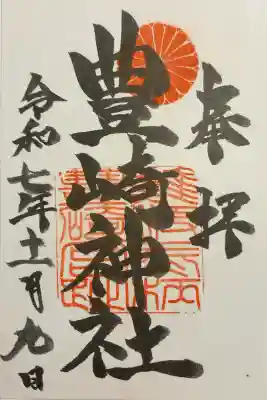 奉拝
豊崎神社
令和七年十一月九日